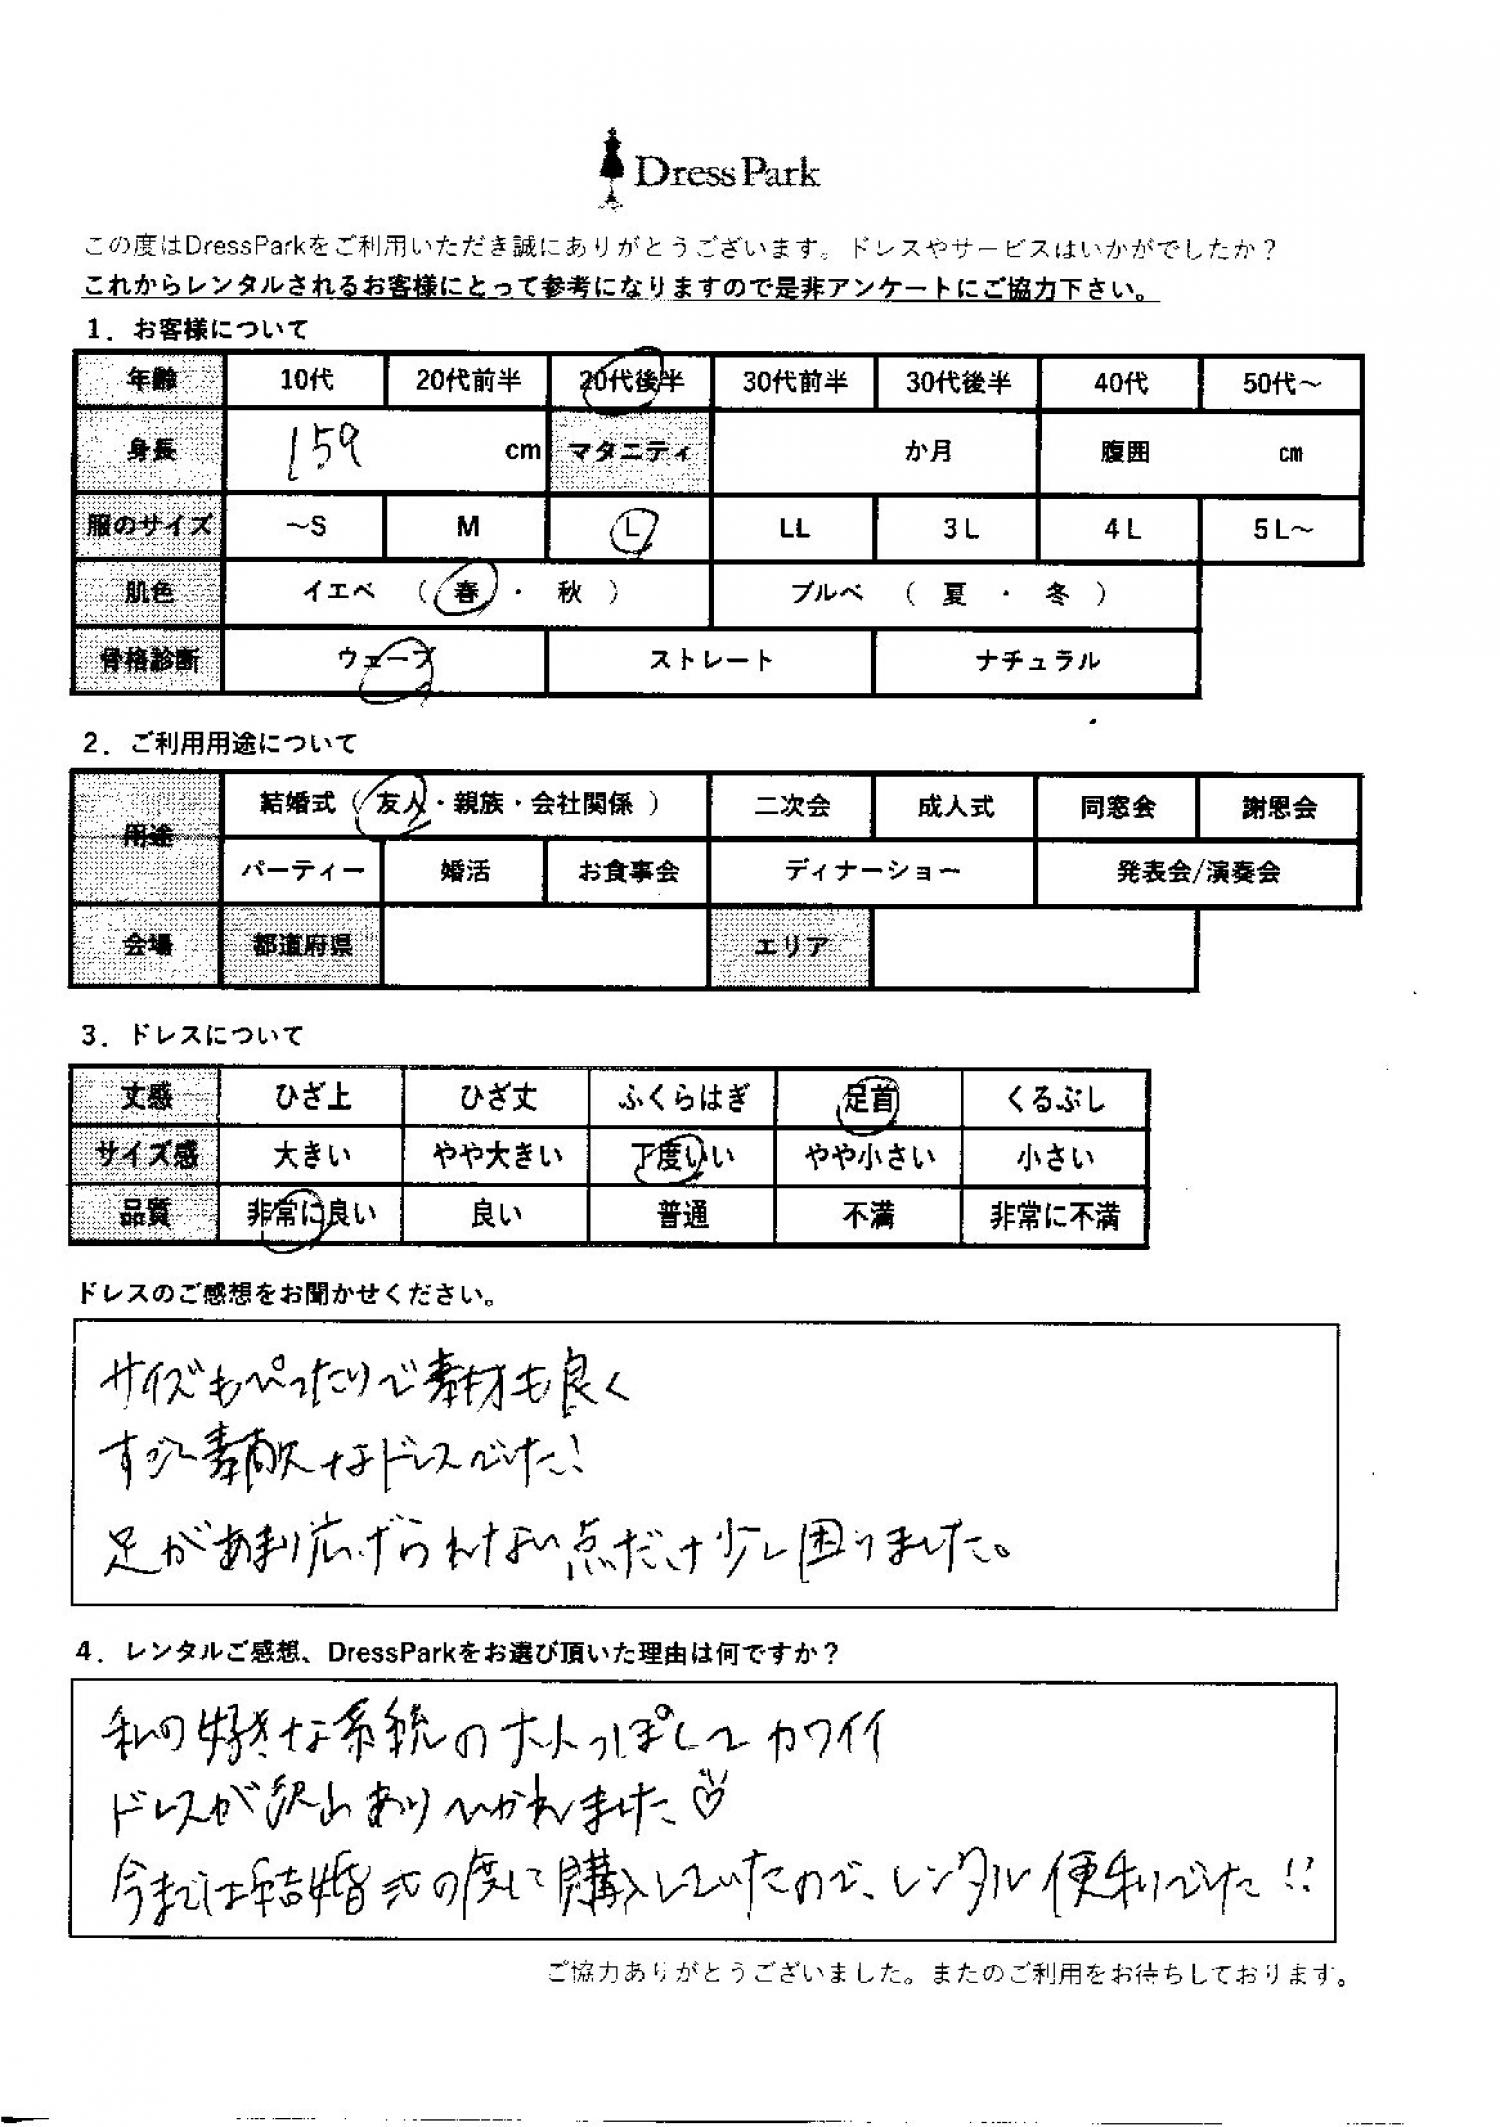 Dress Park
この度はDressParkをご利用いただき誠にありがとうございます。ドレスやサービスはいかがでしたか？
これからレンタルされるお客様にとって参考になりますので是非アンケートにご協力下さい。
1．お客様について
年齢 10代 20代前半 20代後半 30代前半 30代後半 40代 50代～
身長 159 cm マタニティ か月 腹囲 cm
服のサイズ ～S M L LL 3L 4L 5L～
肌色 イエベ （ 春 ・ 秋 ） ブルベ （ 夏 ・ 冬 ）
骨格診断 ウェーブ ストレート ナチュラル
2．ご利用用途について
用途 結婚式（ 友人・親族・会社関係 ） 二次会 成人式 同窓会 謝恩会
パーティー 婚活 お食事会 ディナーショー 発表会/演奏会
会場 都道府県 エリア
3．ドレスについて
丈感 ひざ上 ひざ丈 ふくらはぎ 足首 くるぶし
サイズ感 大きい やや大きい 丁度いい やや小さい 小さい
品質 非常に良い 良い 普通 不満 非常に不満
ドレスのご感想をお聞かせください。
サイズもぴったりで素材も良く
すごく素敵なドレスでした！
足があまり広げられない点だけ少し困りました。
4．レンタルご感想、DressParkをお選び頂いた理由は何ですか？
私の好きな系統の大人っぽくてカワイイ
ドレスが沢山ありひかれました♡
今までは結婚式の度に購入していたので、レンタル便利でした!!
ご協力ありがとうございました。またのご利用をお待ちしております。